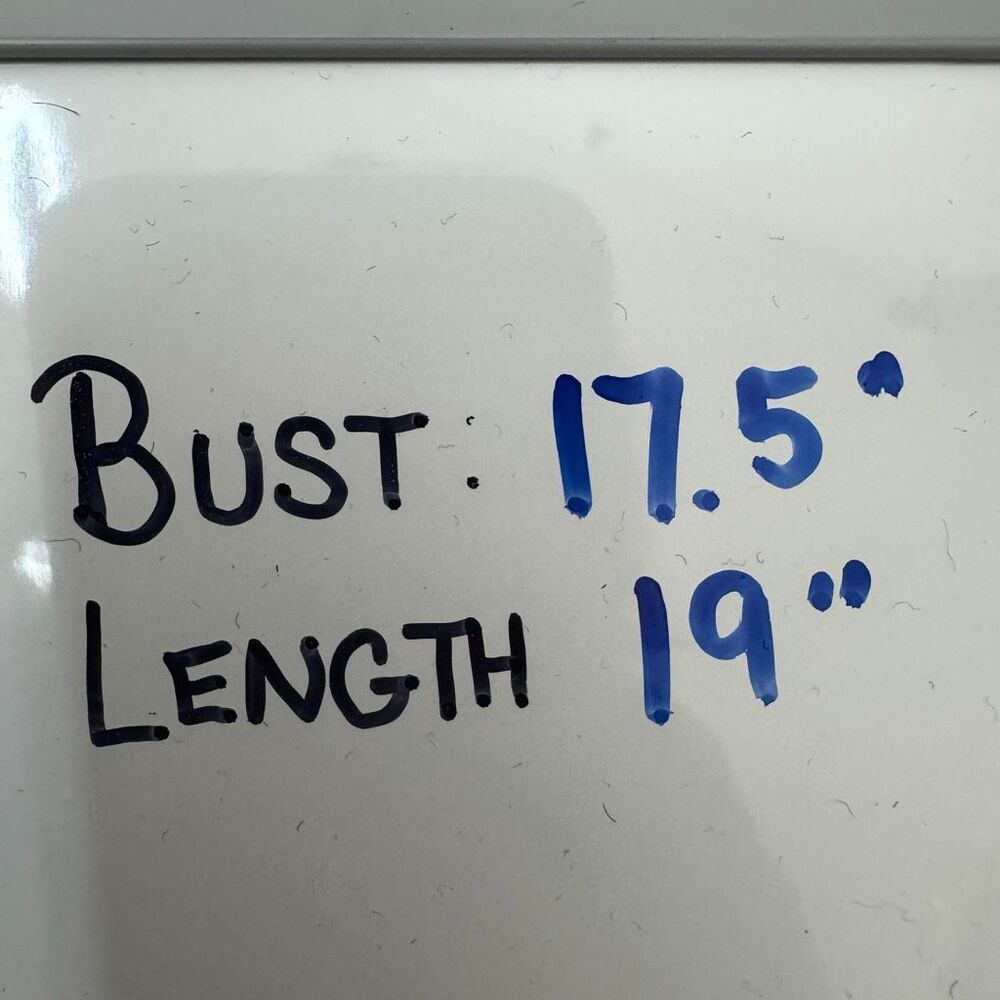 BUST: 17.5"
LENGTH 19"